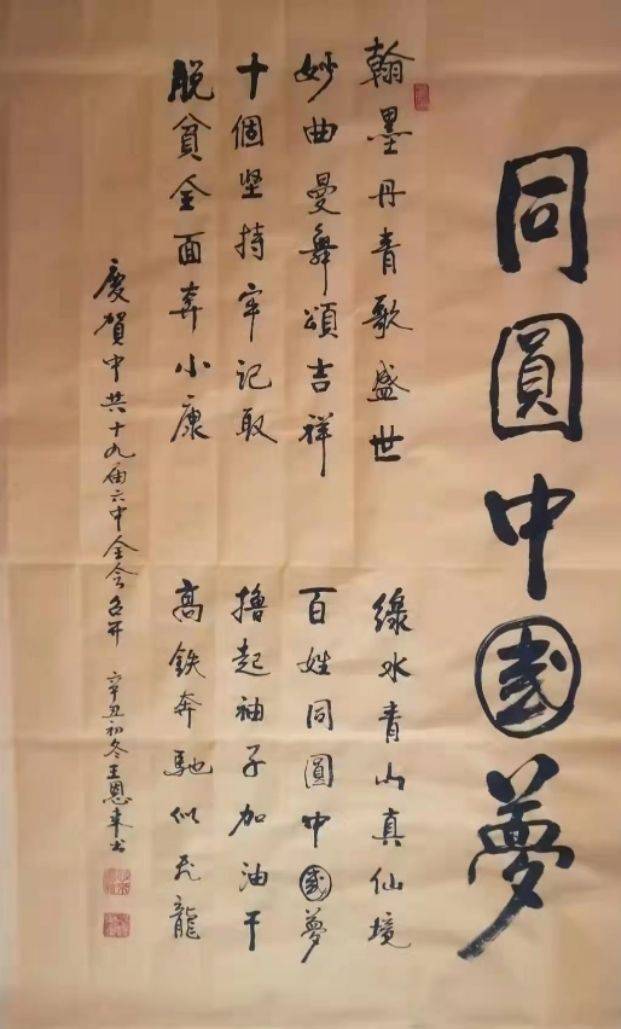 同圓中國夢
翰墨丹青歌盛世
妙曲曼舞頌吉祥
十個坚持牢记取
脱貧全面奔小康
線水青山真仙境
百姓同圓中國夢
撸起袖子加油干
高鉄奔馳似飛龍
慶賀中共十九届六中全会召开 辛丑初冬王恩来书